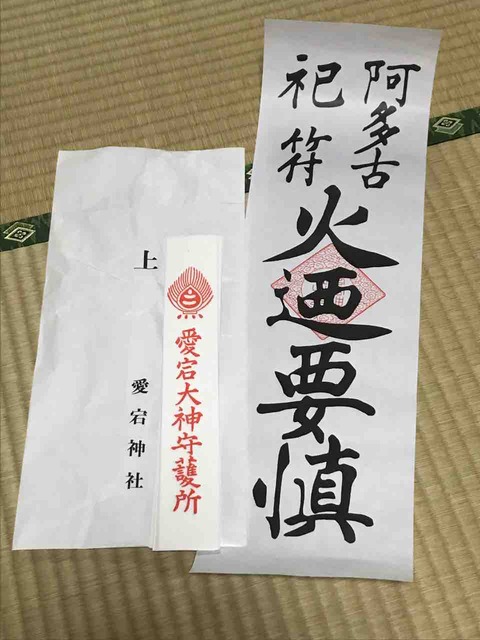 阿多古
祀符
火迺要慎
愛宕大神守護所
上
愛宕神社